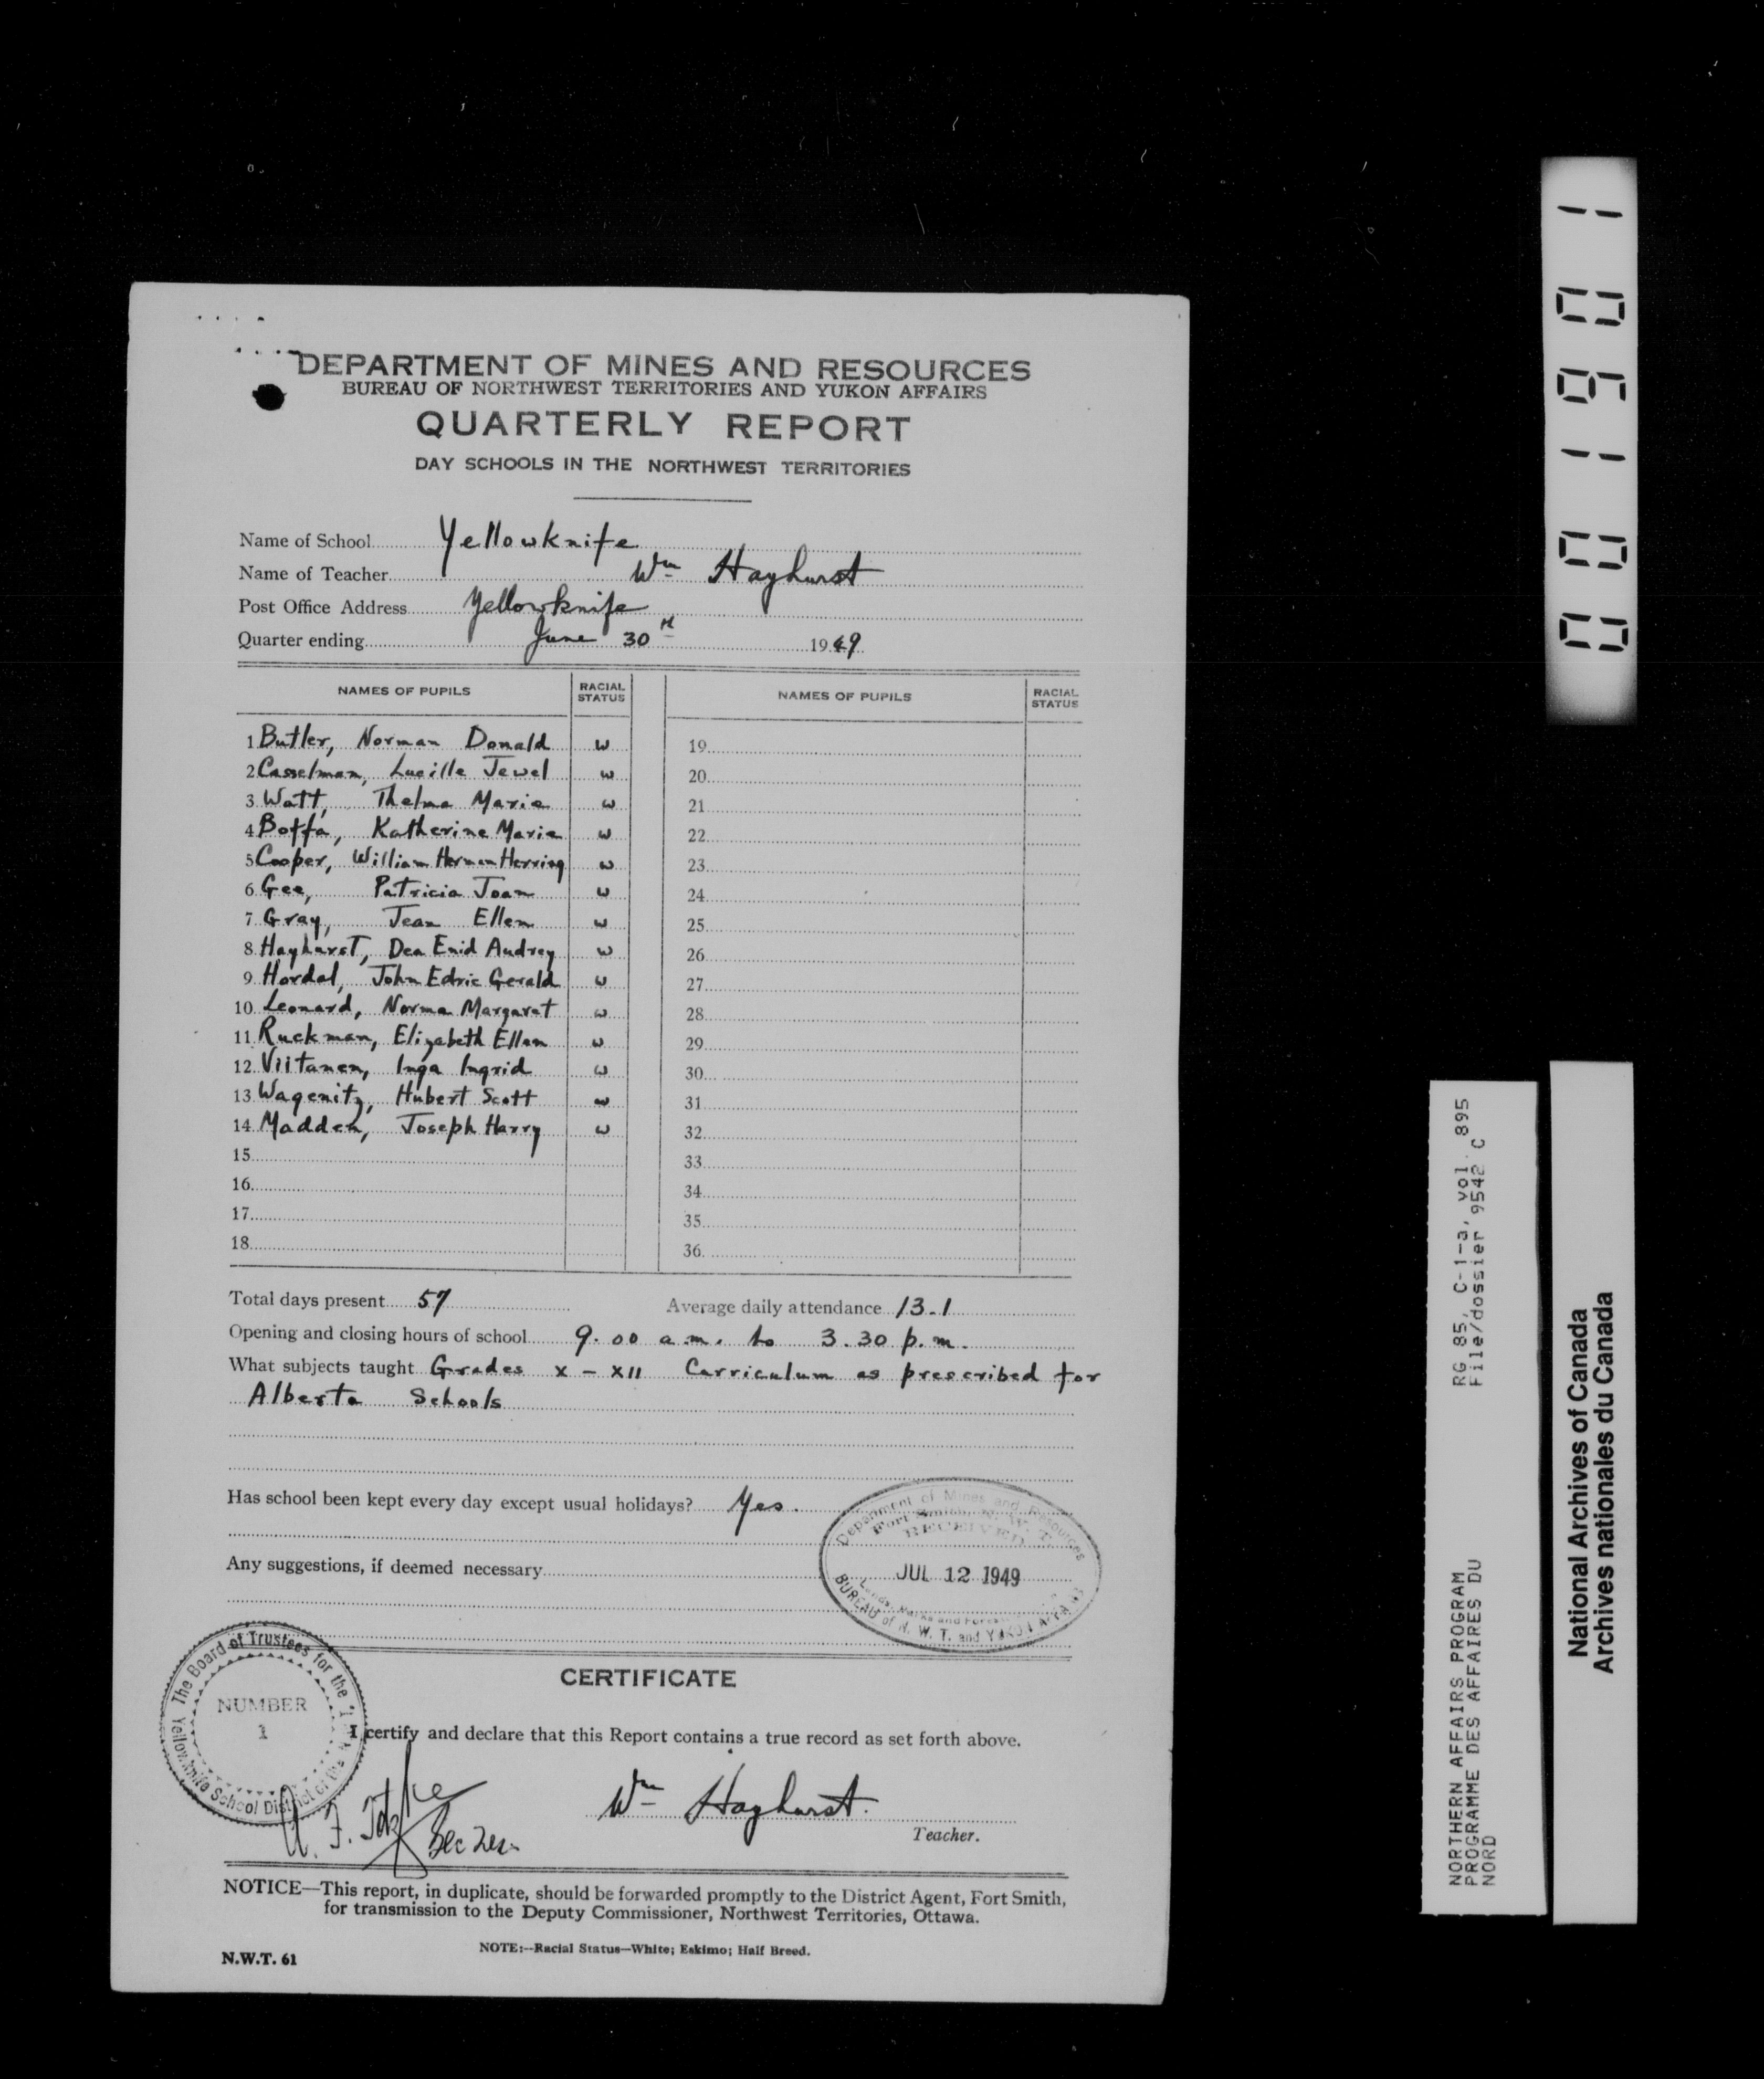 DEPARTMENT OF MINES AND RESOURCES
BUREAU OF NORTHWEST TERRITORIES AND YUKON AFFAIRS
QUARTERLY REPORT
DAY SCHOOLS IN THE NORTHWEST TERRITORIES
Name of School Yellowknife
Name of Teacher Wm Hayhurst
Post Office Address Yellowknife
Quarter ending June 30th 1949
NAMES OF PUPILS RACIAL STATUS NAMES OF PUPILS RACIAL STATUS
1 Butler, Norman Donald W 19
2 Casselman, Lucille Jewel W 20
3 Watt, Thelma Marie W 21
4 Boffa, Katherine Marie W 22
5 Cooper, William Herman Herring W 23
6 Gee, Patricia Joan W 24
7 Gray, Jean Ellen W 25
8 Hayhurst, Dea Enid Audrey W 26
9 Hordal, John Edric Gerald W 27
10 Leonard, Norma Margaret W 28
11 Ruckman, Elizabeth Ellen W 29
12 Viitanen, Inga Ingrid W 30
13 Wagenitz, Hubert Scott W 31
14 Madden, Joseph Harry W 32
15 33
16 34
17 35
18 36
Total days present 57 Average daily attendance 13.1
Opening and closing hours of school 9.00 a.m. to 3.30 p.m.
What subjects taught Grades X - XII Curriculum as prescribed for
Alberta Schools
Has school been kept every day except usual holidays? Yes.
Any suggestions, if deemed necessary
Department of Mines and Resources
Fort Smith, N. W. T.
RECEIVED
JUL 12 1949
Lands, Parks and Forests
BUREAU of N. W. T. and YUKON AFFAIRS
CERTIFICATE
The Board of Trustees for the
NUMBER
1
Yellowknife School District of the
I certify and declare that this Report contains a true record as set forth above.
Wm Hayhurst.
A. F.
Teacher.
NOTICE—This report, in duplicate, should be forwarded promptly to the District Agent, Fort Smith,
for transmission to the Deputy Commissioner, Northwest Territories, Ottawa.
NOTE:--Racial Status--White; Eskimo; Half Breed.
N.W.T. 61
001901
RG 85, C-1-a, vol. 895
File/dossier 9542 C
NORTHERN AFFAIRS PROGRAM
PROGRAMME DES AFFAIRES DU
NORD
National Archives of Canada
Archives nationales du Canada